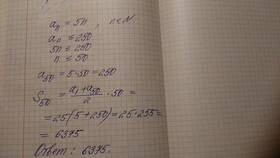 aₙ = 5n , n∈N
aₙ ≤ 250
5n ≤ 250
n ≤ 50
a₅₀ = 5·50 = 250
S₅₀ = (a₁ + a₅₀)/2 · 50 =
= 25(5+250) = 25·255 =
= 6375
Ответ: 6375.